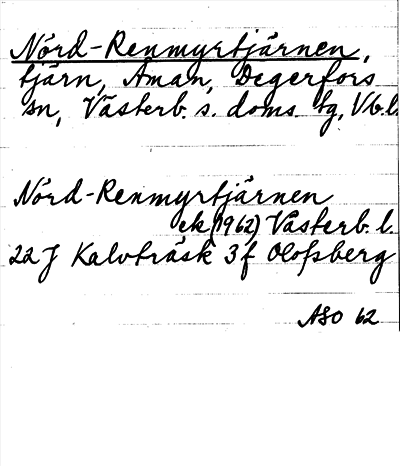 Nörd-Renmyrtjärnen,
tjärn, Åman, Degerfors
sn, Västerb. s. doms. tg, Vb. l.
Nörd-Renmyrtjärnen
ek (1962) Västerb. l.
22 J Kalvträsk 3 f Olofsberg
ASO 62